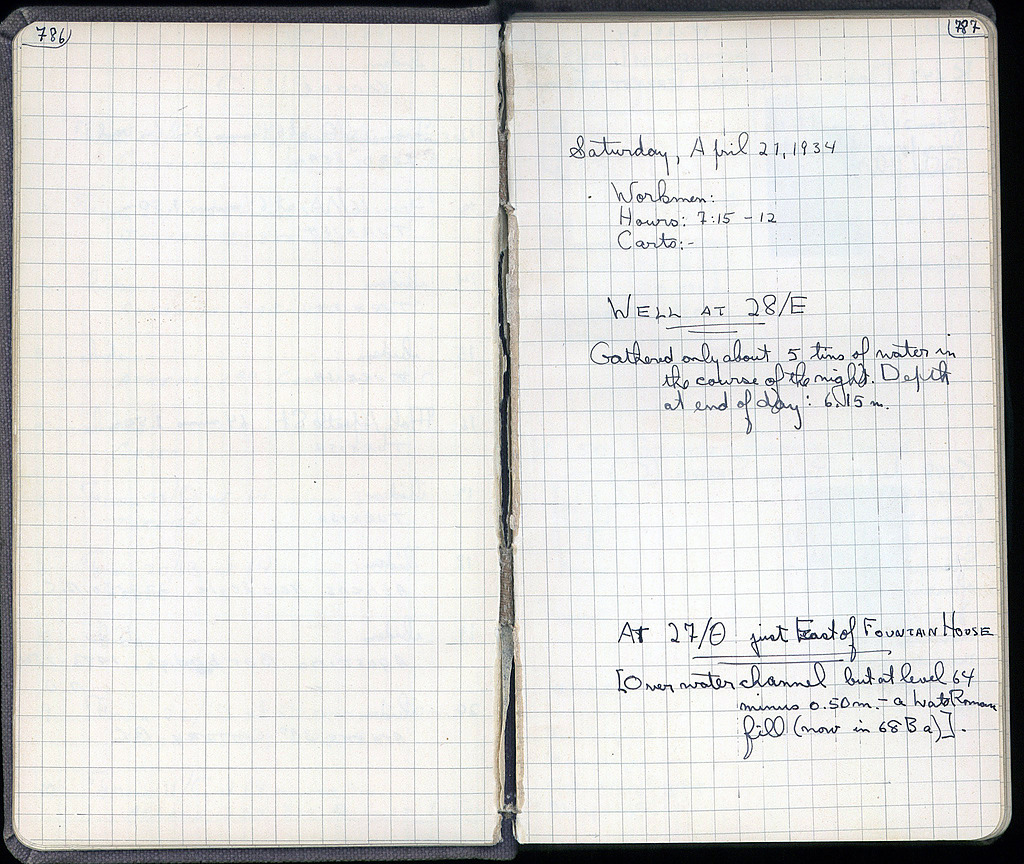 786
787
Saturday, April 21, 1934
Workmen:
Hours: 7:15 - 12
Carts: -
WELL AT 28/E
Gathered only about 5 tins of water in
the course of the night. Depth
at end of day: 6.15 m.
AT 27/Θ just East of FOUNTAIN HOUSE
[Over water channel but at level 64
minus 0.50 m. - a late Roman
fill (now in 68 B a)].